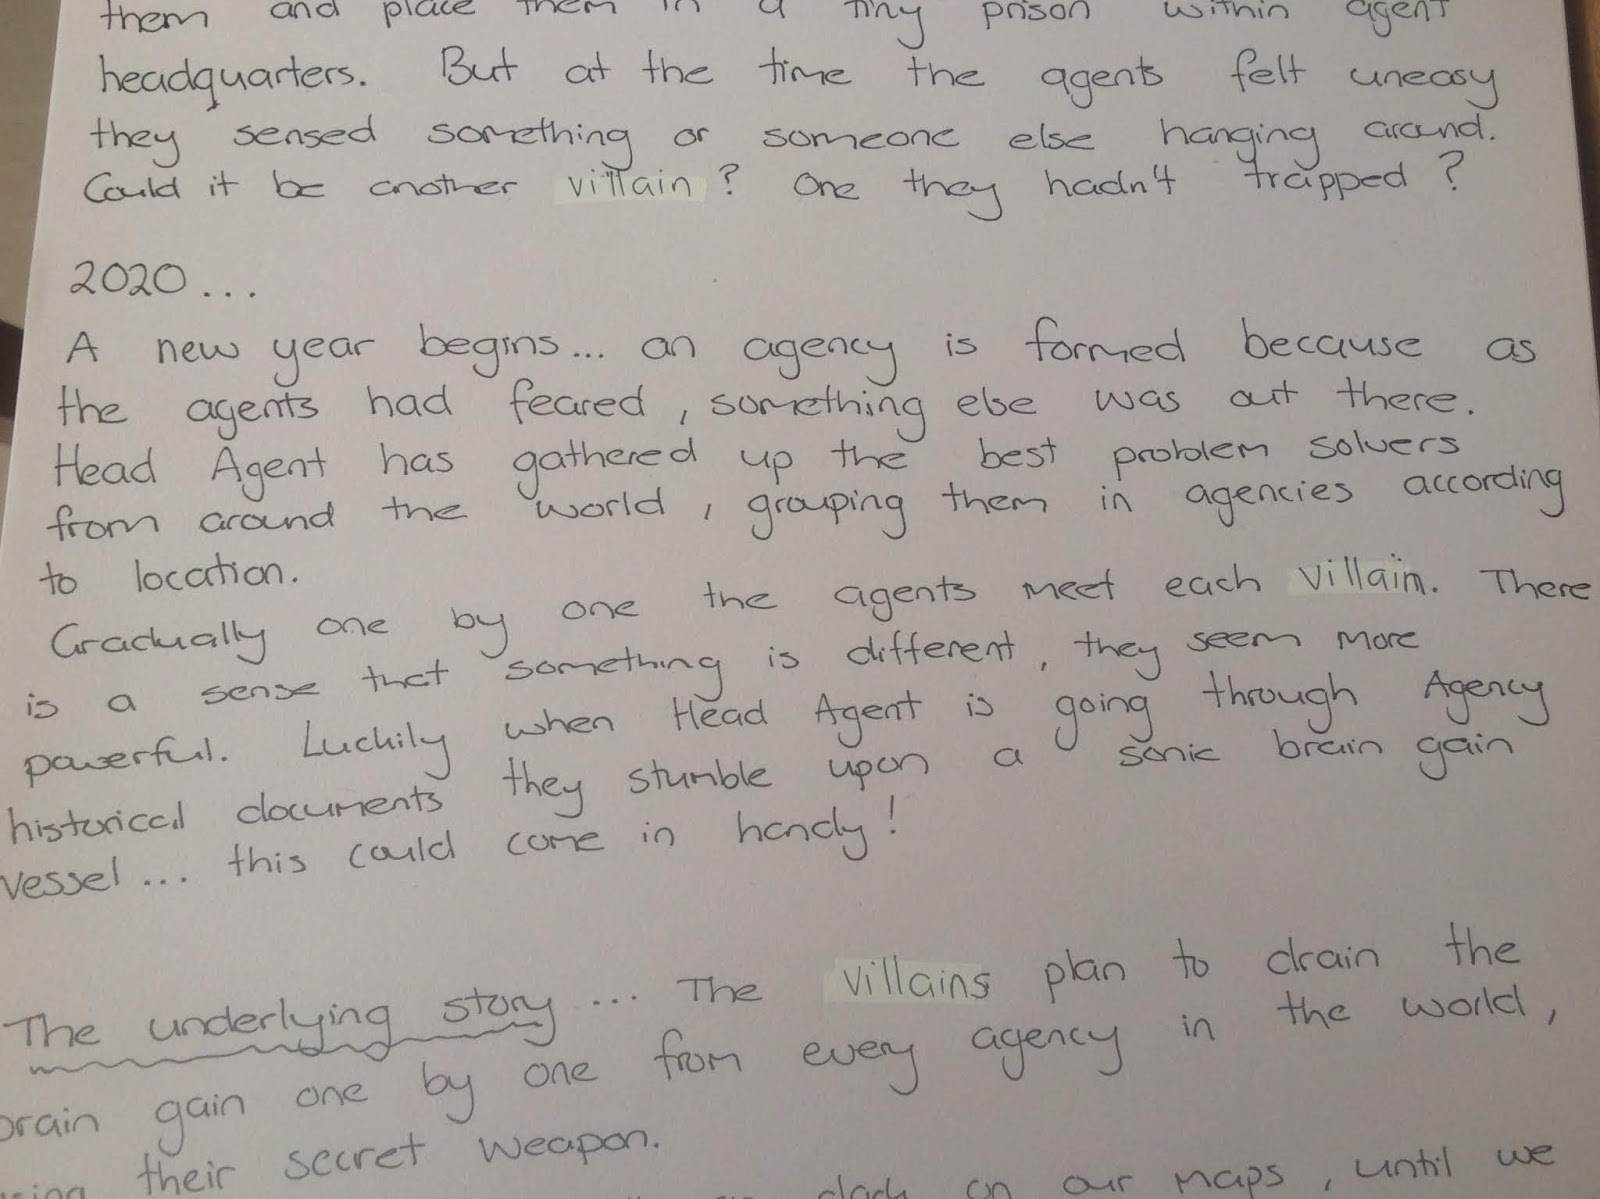 them and place them in a tiny prison within agent
headquarters. But at the time the agents felt uneasy
they sensed something or someone else hanging around.
Could it be another villain? One they hadn't trapped?
2020...
A new year begins... an agency is formed because as
the agents had feared, something else was out there.
Head Agent has gathered up the best problem solvers
from around the world, grouping them in agencies according
to location.
Gradually one by one the agents meet each villain. There
is a sense that something is different, they seem more
powerful. Luckily when Head Agent is going through Agency
historical documents they stumble upon a sonic brain gain
vessel... this could come in handy!
The underlying story... The villains plan to drain the
brain gain one by one from every agency in the world,
their secret weapon.
on our maps, until we